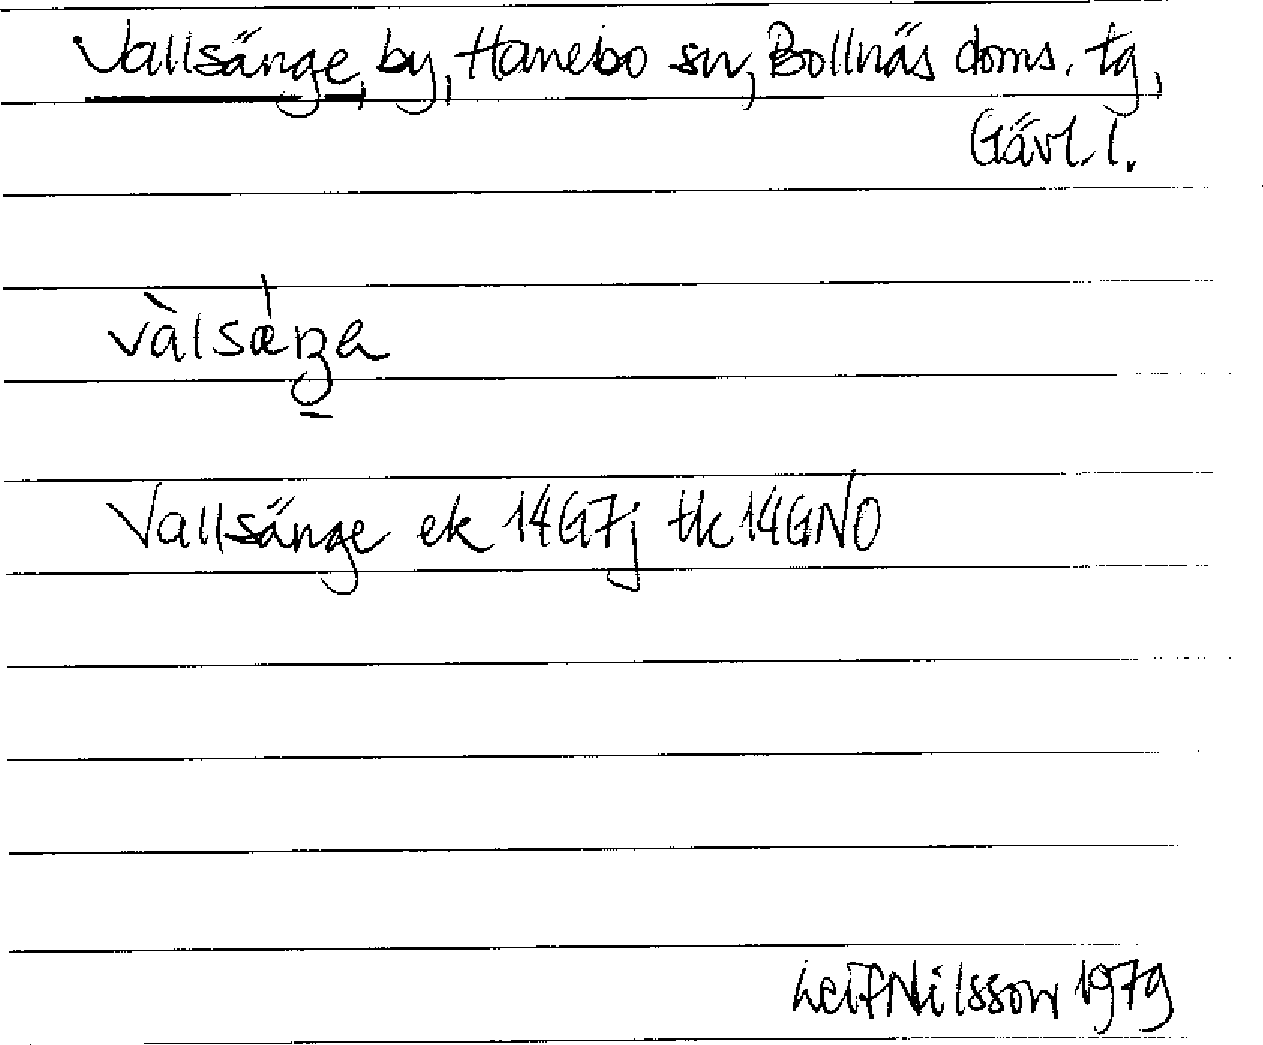 Vallsänge, by, Hanebo sn, Bollnäs doms. tg,
Gävl. l.
Vallsänge ek 14G7j tk 14GNO
Leif Nilsson 1979